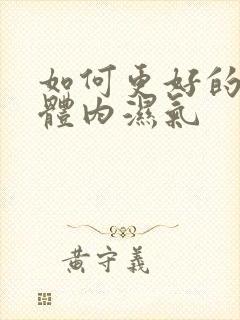 如何更好的
體内濕氣
黃守義